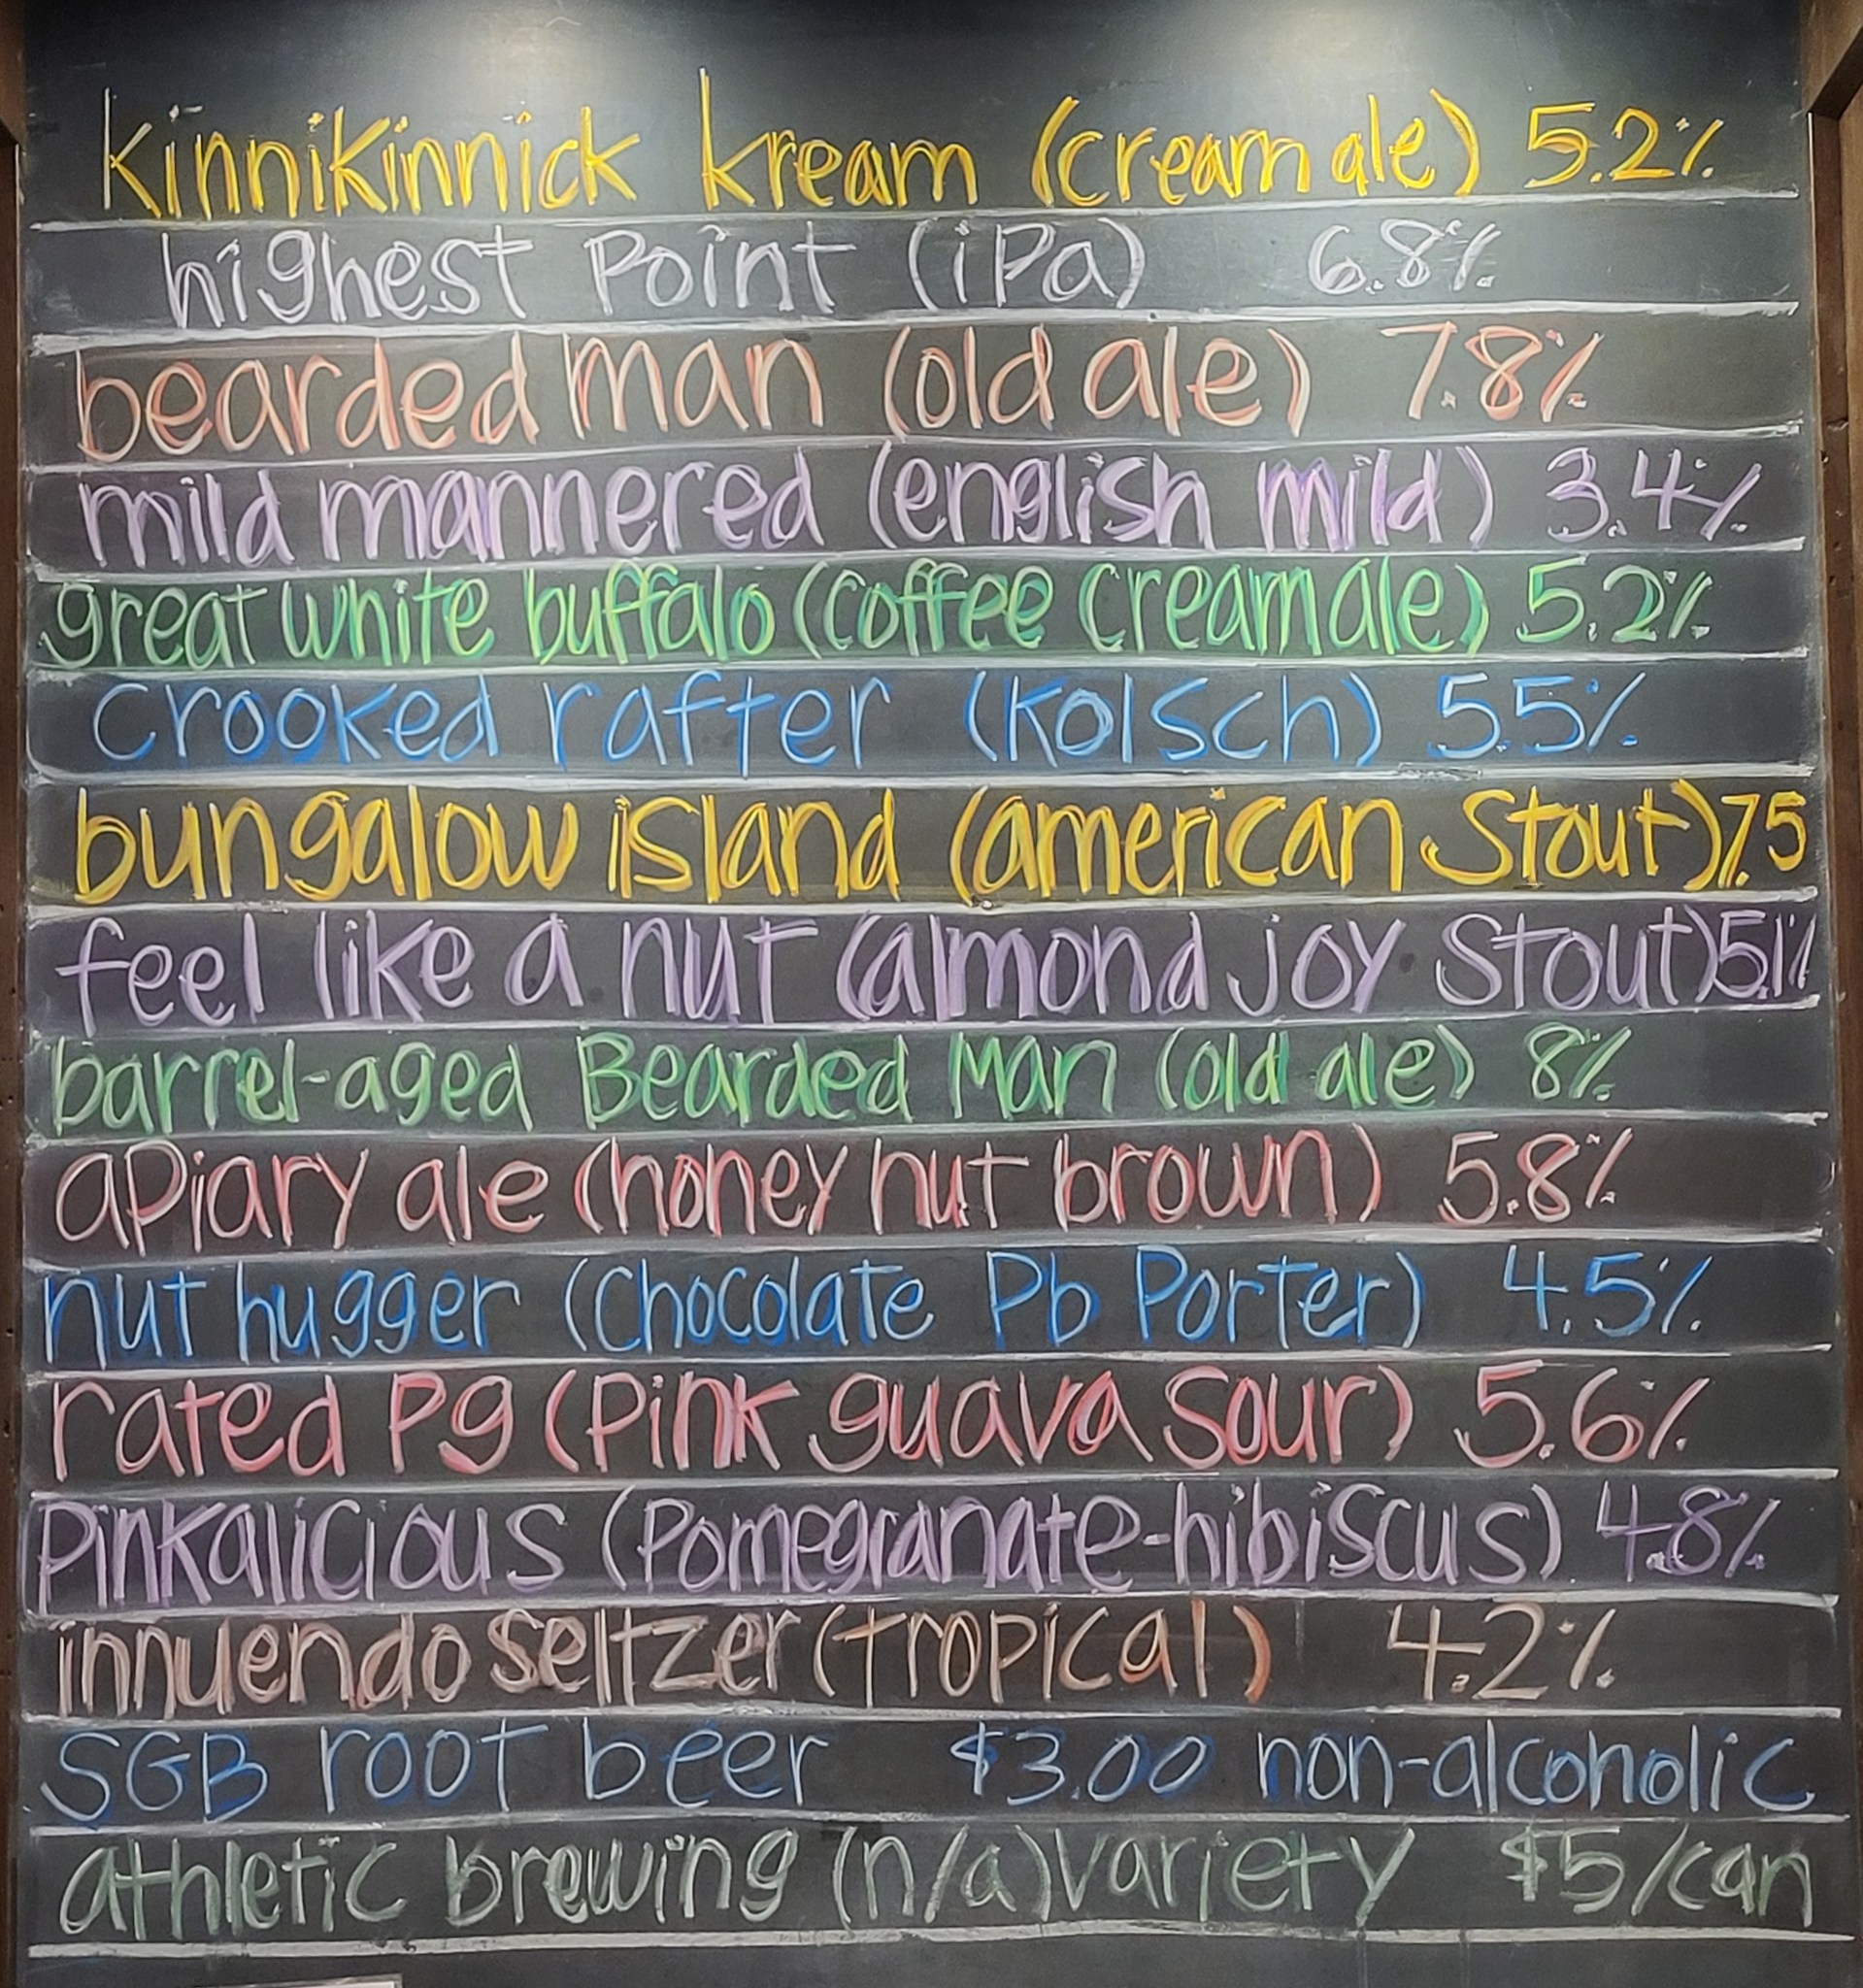 kinnikinnick kream (cream ale) 5.2%
highest Point (iPa) 6.8%
bearded man (old ale) 7.8%
mild mannered (english mild) 3.4%
great white buffalo (coffee cream ale) 5.2%
crooked rafter (kolsch) 5.5%
bungalow island (american stout) 7.5
feel like a nut (almond joy stout) 5.1%
barrel-aged Bearded Man (old ale) 8%
aPiary ale (honey nut brown) 5.8%
nut hugger (chocolate Pb Porter) 4.5%
rated Pg (Pink guava sour) 5.6%
Pinkalicious (Pomegranate-hibiscus) 4.8%
innuendo seltzer (tropical) 4.2%
SGB root beer $3.00 non-alcoholic
athletic brewing (n/a) variety $5/can